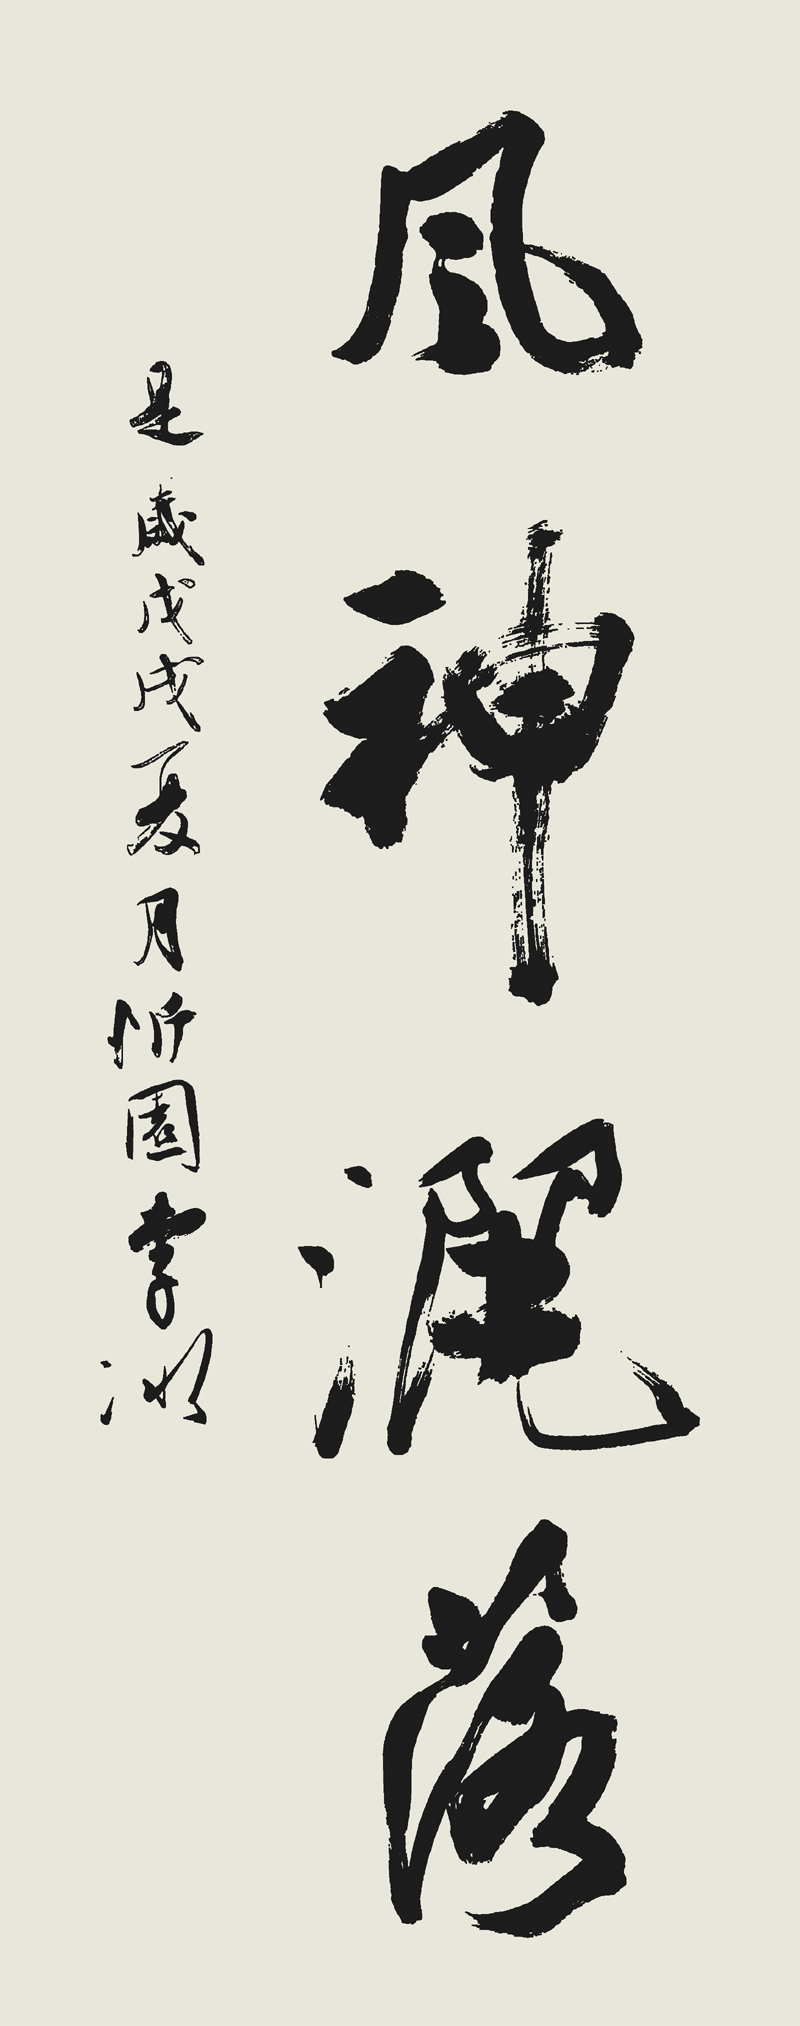 風神灑落
是歲戊戌夏月忻園李